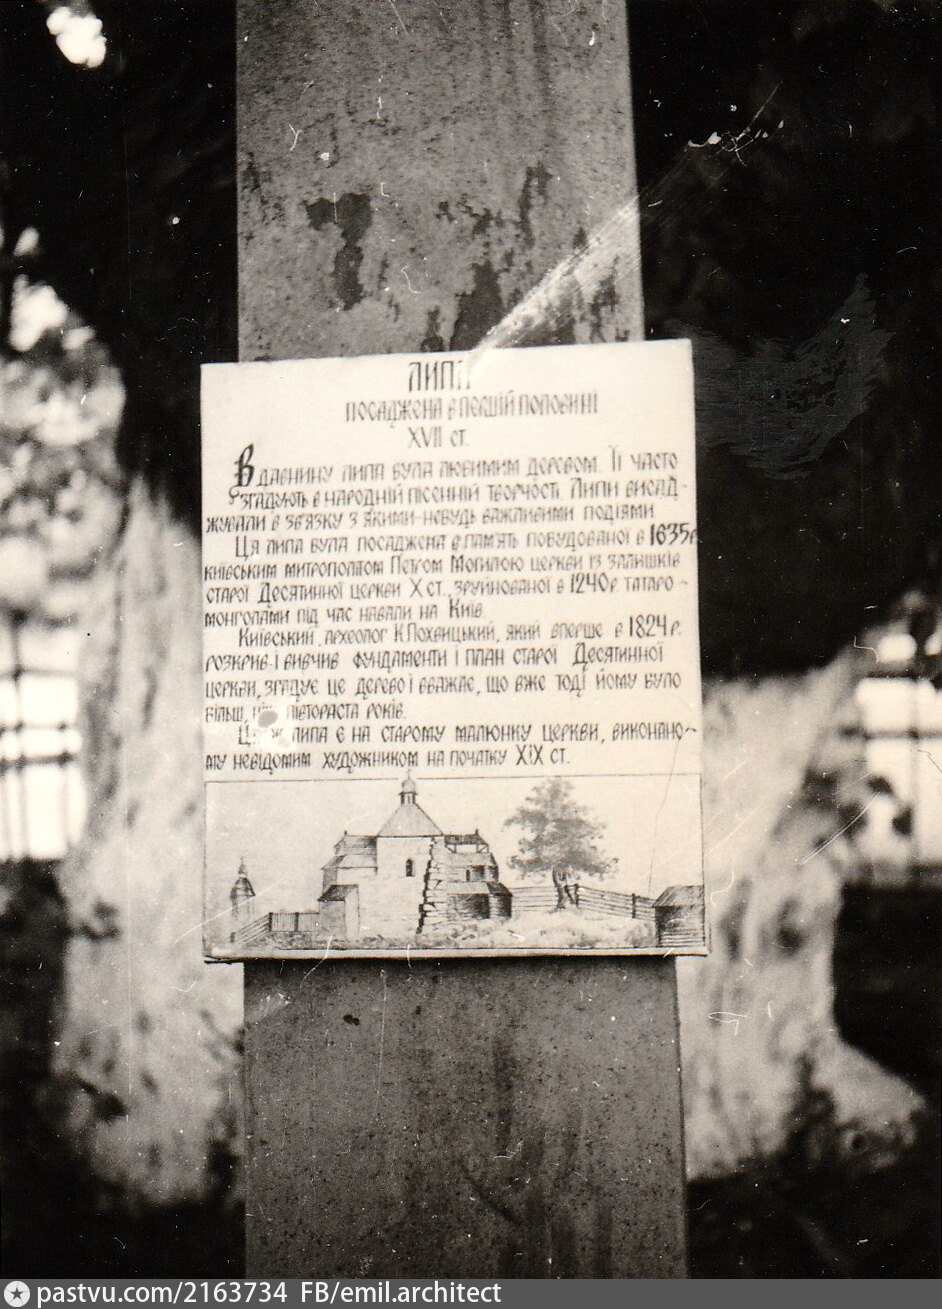 ЛИПА
ПОСАДЖЕНА В ПЕРШІЙ ПОЛОВИНІ
XVII СТ.
В ДАВНИНУ ЛИПА БУЛА ЛЮБИМИМ ДЕРЕВОМ. ЇЇ ЧАСТО
ЗГАДУЮТЬ В НАРОДНІЙ ПІСЕННІЙ ТВОРЧОСТІ. ЛИПИ ВИСАД-
ЖУВАЛИ В ЗВ'ЯЗКУ З ЯКИМИ-НЕБУДЬ ВАЖЛИВИМИ ПОДІЯМИ
ЦЯ ЛИПА БУЛА ПОСАДЖЕНА В ПАМ'ЯТЬ ПОБУДОВАНОЇ В 1635Р
КИЇВСЬКИМ МИТРОПОЛИТОМ ПЕТРОМ МОГИЛОЮ ЦЕРКВИ ІЗ ЗАЛИШКІВ
СТАРОЇ ДЕСЯТИННОЇ ЦЕРКВИ X СТ., ЗРУЙНОВАНОЇ В 1240Р. ТАТАРО-
МОНГОЛАМИ ПІД ЧАС НАВАЛИ НА КИЇВ.
КИЇВСЬКИЙ АРХЕОЛОГ К.ЛОХВИЦЬКИЙ, ЯКИЙ ВПЕРШЕ В 1824 Р.
РОЗКРИВ І ВИВЧИВ ФУНДАМЕНТИ І ПЛАН СТАРОЇ ДЕСЯТИННОЇ
ЦЕРКВИ, ЗГАДУЄ ЦЕ ДЕРЕВО І ВВАЖАЄ, ЩО ВЖЕ ТОДІ ЙОМУ БУЛО
БІЛЬШ, НІЖ ПІВТОРАСТА РОКІВ.
ЦЯ Ж ЛИПА Є НА СТАРОМУ МАЛЮНКУ ЦЕРКВИ, ВИКОНАНО-
МУ НЕВІДОМИМ ХУДОЖНИКОМ НА ПОЧАТКУ XIX СТ.
pastvu.com/2163734 FB/emil.architect